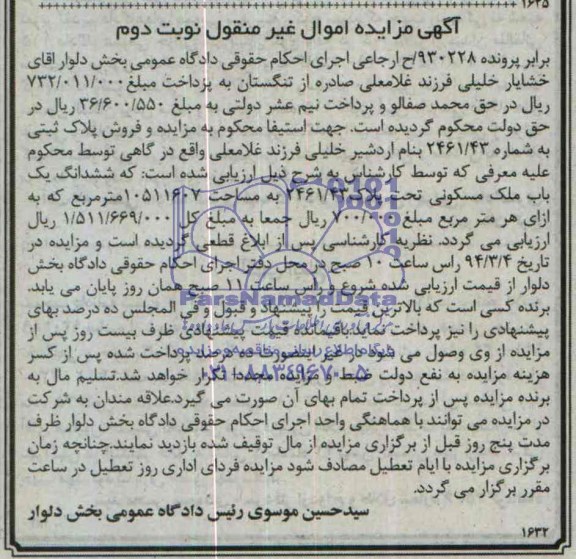 ۱۶۳۵
آگهی مزایده اموال غیر منقول نوبت دوم
برابر پرونده ۹۳۰۲۲۸/ح ارجاعی اجرای احکام حقوقی دادگاه عمومی بخش دلوار اقای
خشایار خلیلی فرزند غلامعلی صادره از تنگستان به پرداخت مبلغ ۷۳۲/۰۱۱/۰۰۰
ریال در حق محمد صفالو و پرداخت نیم عشر دولتی به مبلغ ۳۶/۶۰۰/۵۵۰ ریال در
حق دولت محکوم گردیده است. جهت استیفا محکوم به مزایده و فروش پلاک ثبتی
به شماره ۲۴۶۱/۴۳ بنام اردشیر خلیلی فرزند غلامعلی واقع در گاهی توسط محکوم
علیه معرفی که توسط کارشناس به شرح ذیل ارزیابی شده است: که ششدانگ یک
باب ملک مسکونی تحت پلاک ۲۴۶۱/۴۳ به مساحت مترمربع که به
ازای هر متر مربع مبلغ ۷۰۰/۰۰۰ ریال جمعا به مبلغ کل ۱/۵۱۱/۶۶۹/۰۰۰ ریال
ارزیابی می گردد. نظریه کارشناسی پس از ابلاغ قطعی گردیده است و مزایده در
تاریخ ۹۴/۳/۴ راس ساعت ۱۰ صبح در محل دفتر اجرای احکام حقوقی دادگاه بخش
دلوار از قیمت ارزیابی شده شروع و راس ساعت ۱۱ صبح همان روز پایان می یابد.
برنده کسی است که بالاترین قیمت را پیشنهاد و قبول و فی المجلس ده درصد بهای
پیشنهادی را نیز پرداخت نماید باقیمانده قیمت پیشنهادی ظرف بیست روز پس از
مزایده از وی وصول می شود در غیر اینصورت ده درصد پرداخت شده پس از کسر
هزینه مزایده به نفع دولت ضبط و مزایده مجددا تکرار خواهد شد.تسلیم مال به
برنده مزایده پس از پرداخت تمام بهای آن صورت می گیرد.علاقه مندان به شرکت
در مزایده می توانند با هماهنگی واحد اجرای احکام حقوقی دادگاه بخش دلوار ظرف
مدت پنج روز قبل از برگزاری مزایده از مال توقیف شده بازدید نمایند.چنانچه زمان
برگزاری مزایده با ایام تعطیل مصادف شود مزایده فردای اداری روز تعطیل در ساعت
مقرر برگزار می گردد.
سیدحسین موسوی رئیس دادگاه عمومی بخش دلوار
۱۶۳۲
ParsNamadData